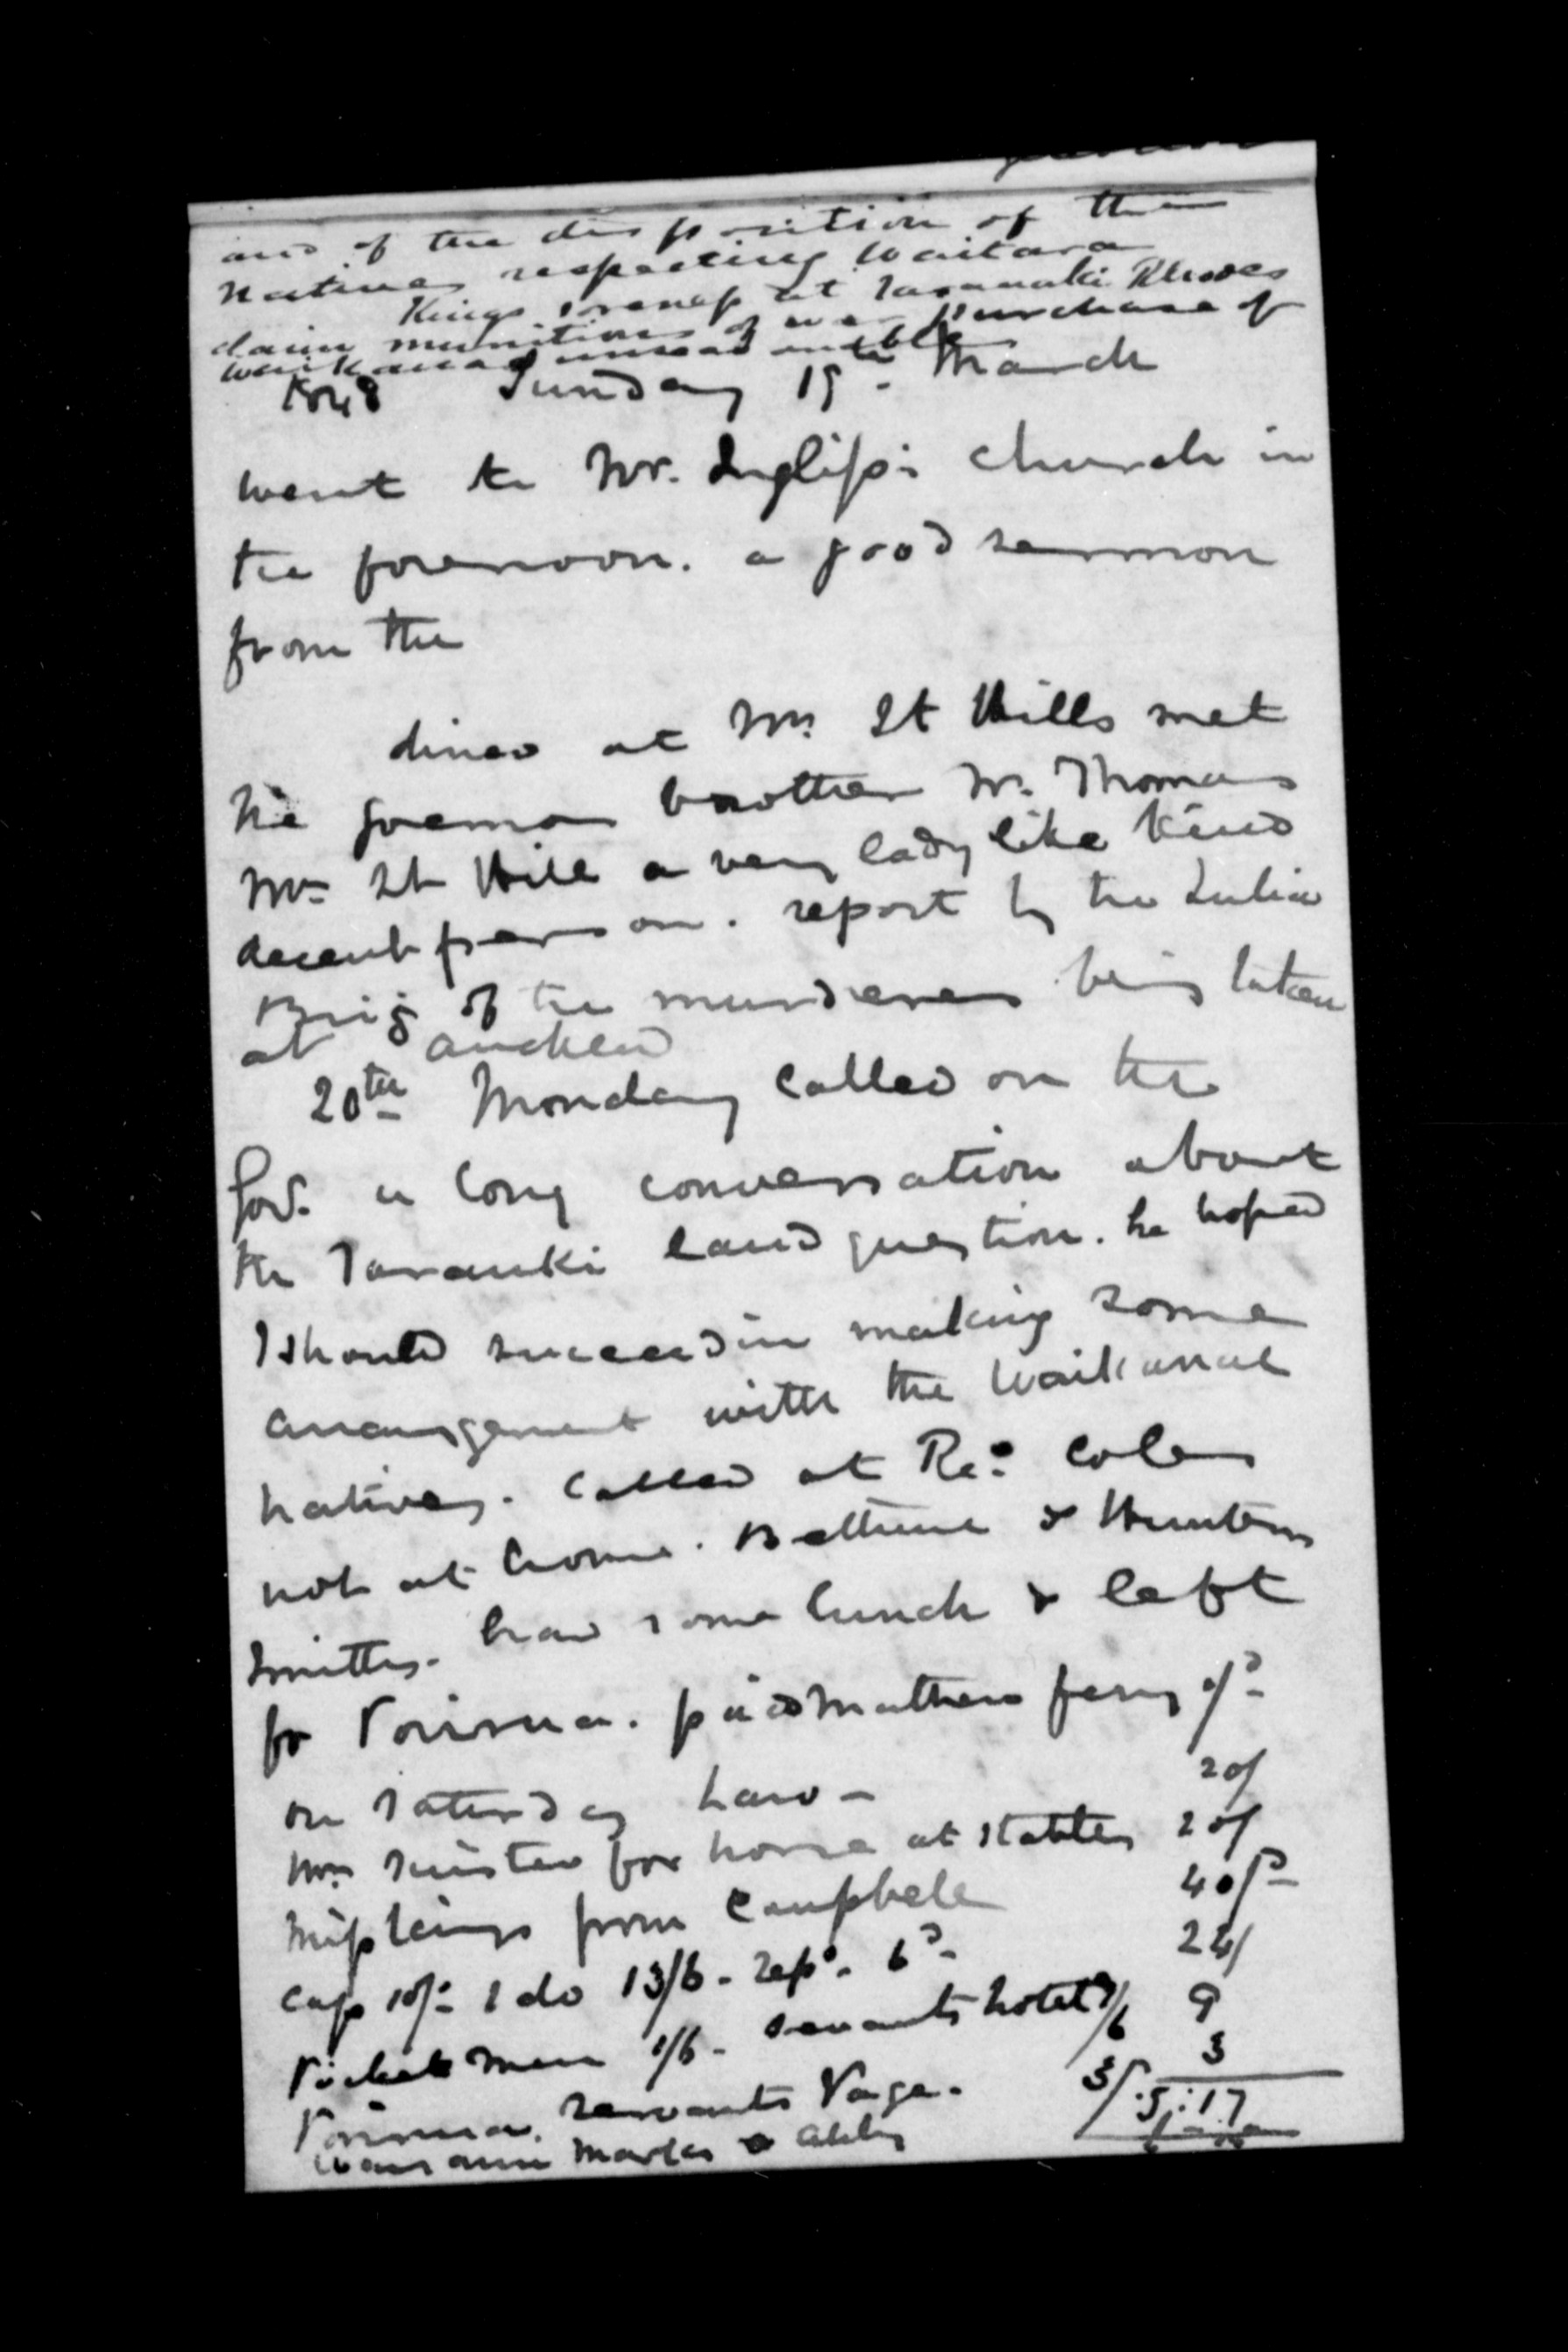 and of the disposition of the
natives respecting Waitara
Kings at Taranaki Rhodes
claim munitions of war purchase of
Waikanae
1848 Sunday 19th March
went to Mr. Inglis's church in
the forenoon. a good sermon
from the
dined at Mr. St Hills met
his brother Mr. Thomas
Mrs St Hill a very lady like kind
decent person. report by the Julia
Brig of the murderers being taken
at Auckland
20th Monday called on the
Gov. a long conversation about
the Taranaki land question. he hoped
I should succeed in making some
arrangement with the Waikanae
natives. Called at Revd. Coles
not at home. Bethune & Hunters
Smiths. had some lunch & left
for Porirua. paid Mathews ferry
on Saturday had - 20/
Mrs for horse at stables 20/
from Campbell 40/
cap 10/- 1 do 13/6 - 6d 24/
men 1/6 - servants hotel 7/6 9
Porirua. servants Page. 3/ 3
5:17